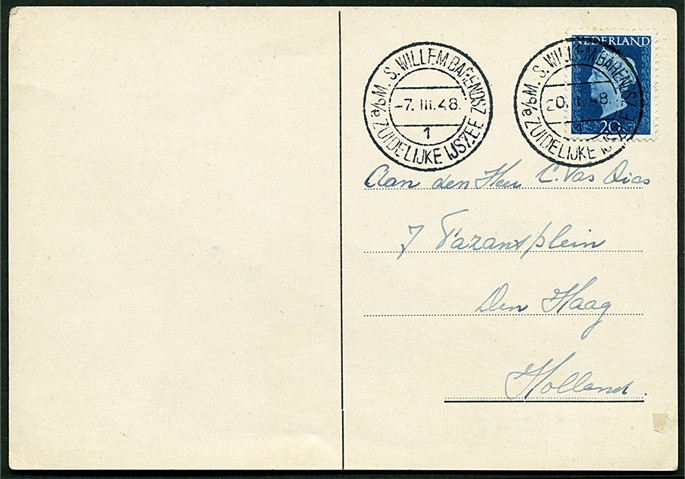 a/b M. S. WILLEM BARENDSZ
-7. III. 48.
1
ZUIDELIJKE IJSZEE
NEDERLAND
20
a/b M. S. WILLEM BARENDSZ
48.
ZUIDELIJKE IJSZEE
Aan den Heer C. Vas Dias
7
Den Haag
Holland.